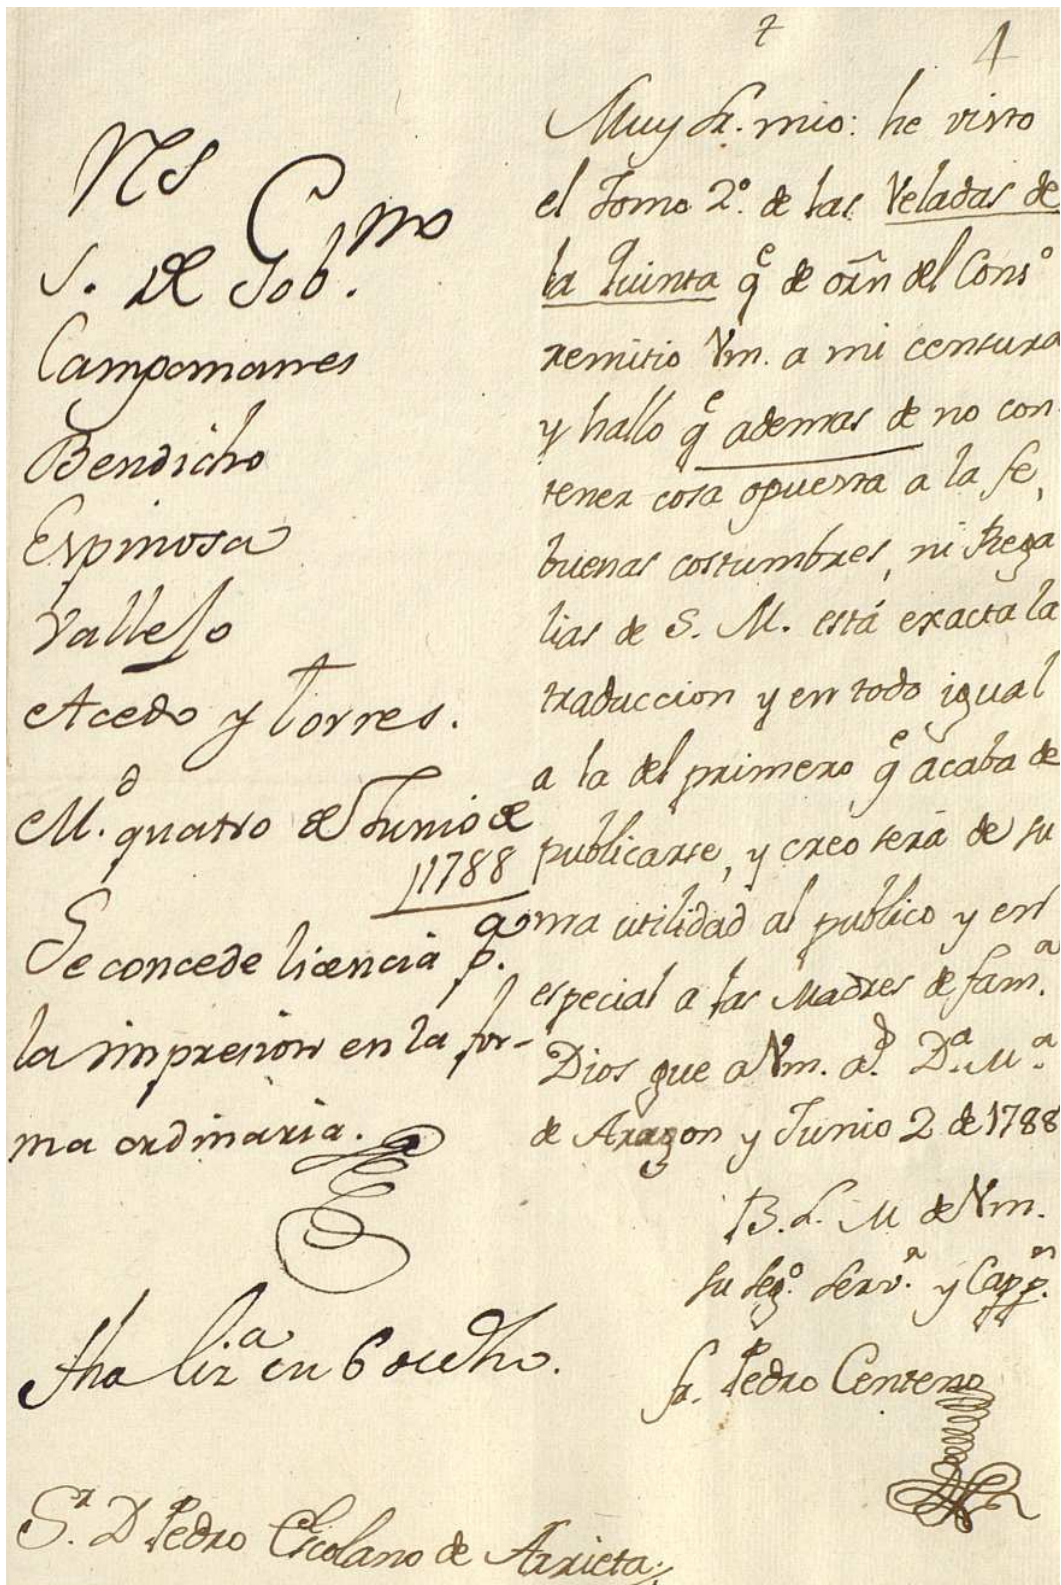 4
Nˢ
S. de Gobⁿᵒ.
Campomanes
Bendicho
Espinosa
Vallejo
Acedo y Torres.
M.ᵈ quatro de Junio de
1788
Se concede licencia pᵃ.
la impresion en la for-
ma ordinaria.
fha lizᵃ en 6 de dho.
Muy Sr. mio: he visto
el Tomo 2º. de las Veladas de
la Quinta qᵉ de orñ del Consº
remitio Vm. a mi censura
y hallo qᵉ ademas de no con
tener cosa opuesta a la fe,
buenas costumbres, ni Rega
lias de S. M. está exacta la
traduccion y en todo igual
a la del primero qᵉ acaba de
publicarse, y creo será de su
ma utilidad al publico y en
especial a las Madres de famᵃ.
Dios gue a Vm. aˢ. Dᵃ. Mᵃ.
de Aragon y Junio 2 de 1788
B. L. M de Vm.
su segº. servʳ. y Cappⁿ.
fr. Pedro Centeno
Sʳ. D Pedro Escolano de Arrieta.